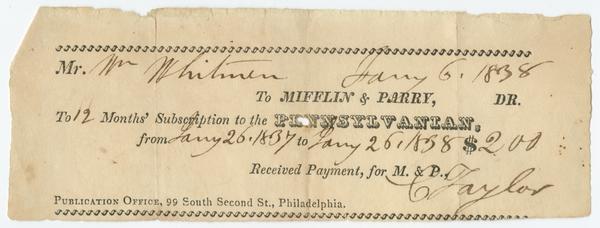 Mr. Wm Whitmen Jany 6. 1838
To MIFFLIN & PARRY, DR.
To 12 Months' Subscription to the PENNSYLVANIAN,
from Jany 26. 1837 to Jany 26. 1838 $2 00
Received Payment, for M. & P.,
C Taylor
PUBLICATION OFFICE, 99 South Second St., Philadelphia.